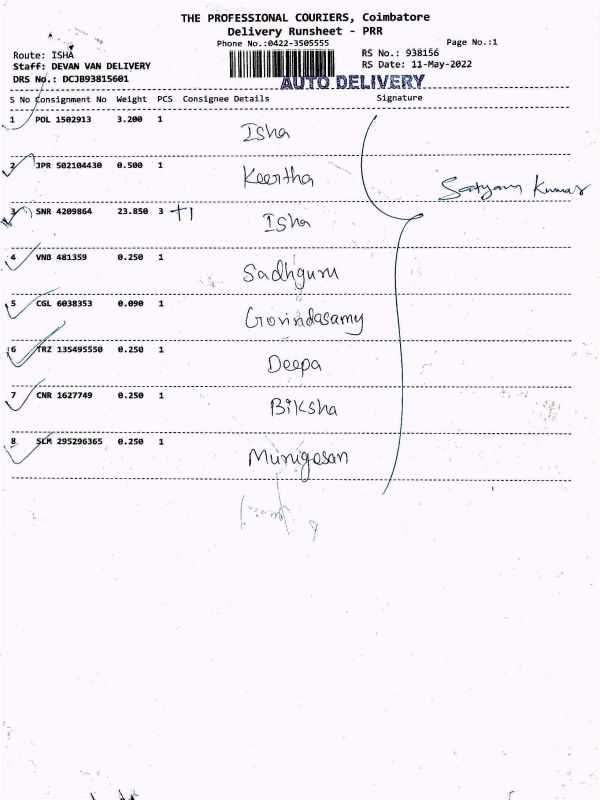 THE PROFESSIONAL COURIERS, Coimbatore
Delivery Runsheet - PRR
Phone No.:0422-3505555 Page No.:1
Route: ISHA RS No.: 938156
Staff: DEVAN VAN DELIVERY RS Date: 11-May-2022
DRS No.: DCJB93815601
AUTO DELIVERY
S No Consignment No Weight PCS Consignee Details Signature
1 POL 1502913 3.200 1
Isha
2 JPR 502104430 0.500 1
Keertha
Satyam Kumar
3 SNR 4209864 23.850 3 +1
Isha
4 VNB 481359 0.250 1
Sadhguru
5 CGL 6038353 0.090 1
Govindasamy
6 TRZ 135495550 0.250 1
Deepa
7 CNR 1627749 0.250 1
Biksha
8 SLM 295296365 0.250 1
Murugesan